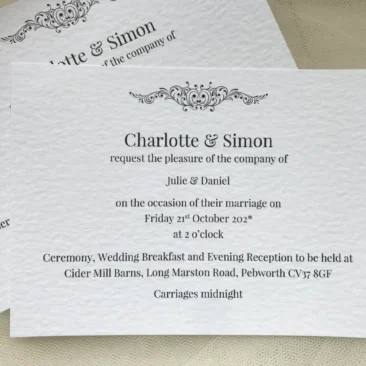 lotte & Simon
of the company of
er
Charlotte & Simon
request the pleasure of the company of
Julie & Daniel
on the occasion of their marriage on
Friday 21st October 202*
at 2 o'clock
Ceremony, Wedding Breakfast and Evening Reception to be held at
Cider Mill Barns, Long Marston Road, Pebworth CV37 8GF
Carriages midnight